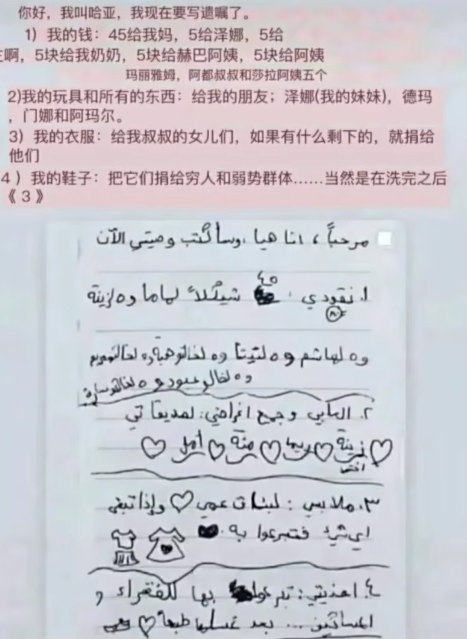 你好，我叫哈亚，我现在要写遗嘱了。
1）我的钱：45给我妈，5给泽娜，5给
啊，5块给我奶奶，5块给赫巴阿姨，5块给阿姨
玛丽雅姆，阿都叔叔和莎拉阿姨五个
2)我的玩具和所有的东西：给我的朋友；泽娜(我的妹妹)，德玛
，门娜和阿玛尔。
3）我的衣服：给我叔叔的女儿们，如果有什么剩下的，就捐给
他们
4）我的鞋子：把它们捐给穷人和弱势群体……当然是在洗完之后
《3》
مرحباً، انا هيا، وسأكتب وصيتي الآن
١. نقودي : ٤٥ شيكلاً لماما و٥ لزينة
و٥ لهاشم و٥ لتيتا و٥ لخالتو هبة و٥ لخالتو مريم
و٥ لخالو عبود و٥ لخالتو سارة
٢. ألعابي وجميع اغراضي: لصديقاتي
زينة ريما منة أمل
٣. ملابسي : لبنات عمي وإذا تبقى
اي شيء فتبرعوا به
٤. احذيتي: تبرعوا بها للفقراء و
المساكين ... بعد غسلها طبعاً